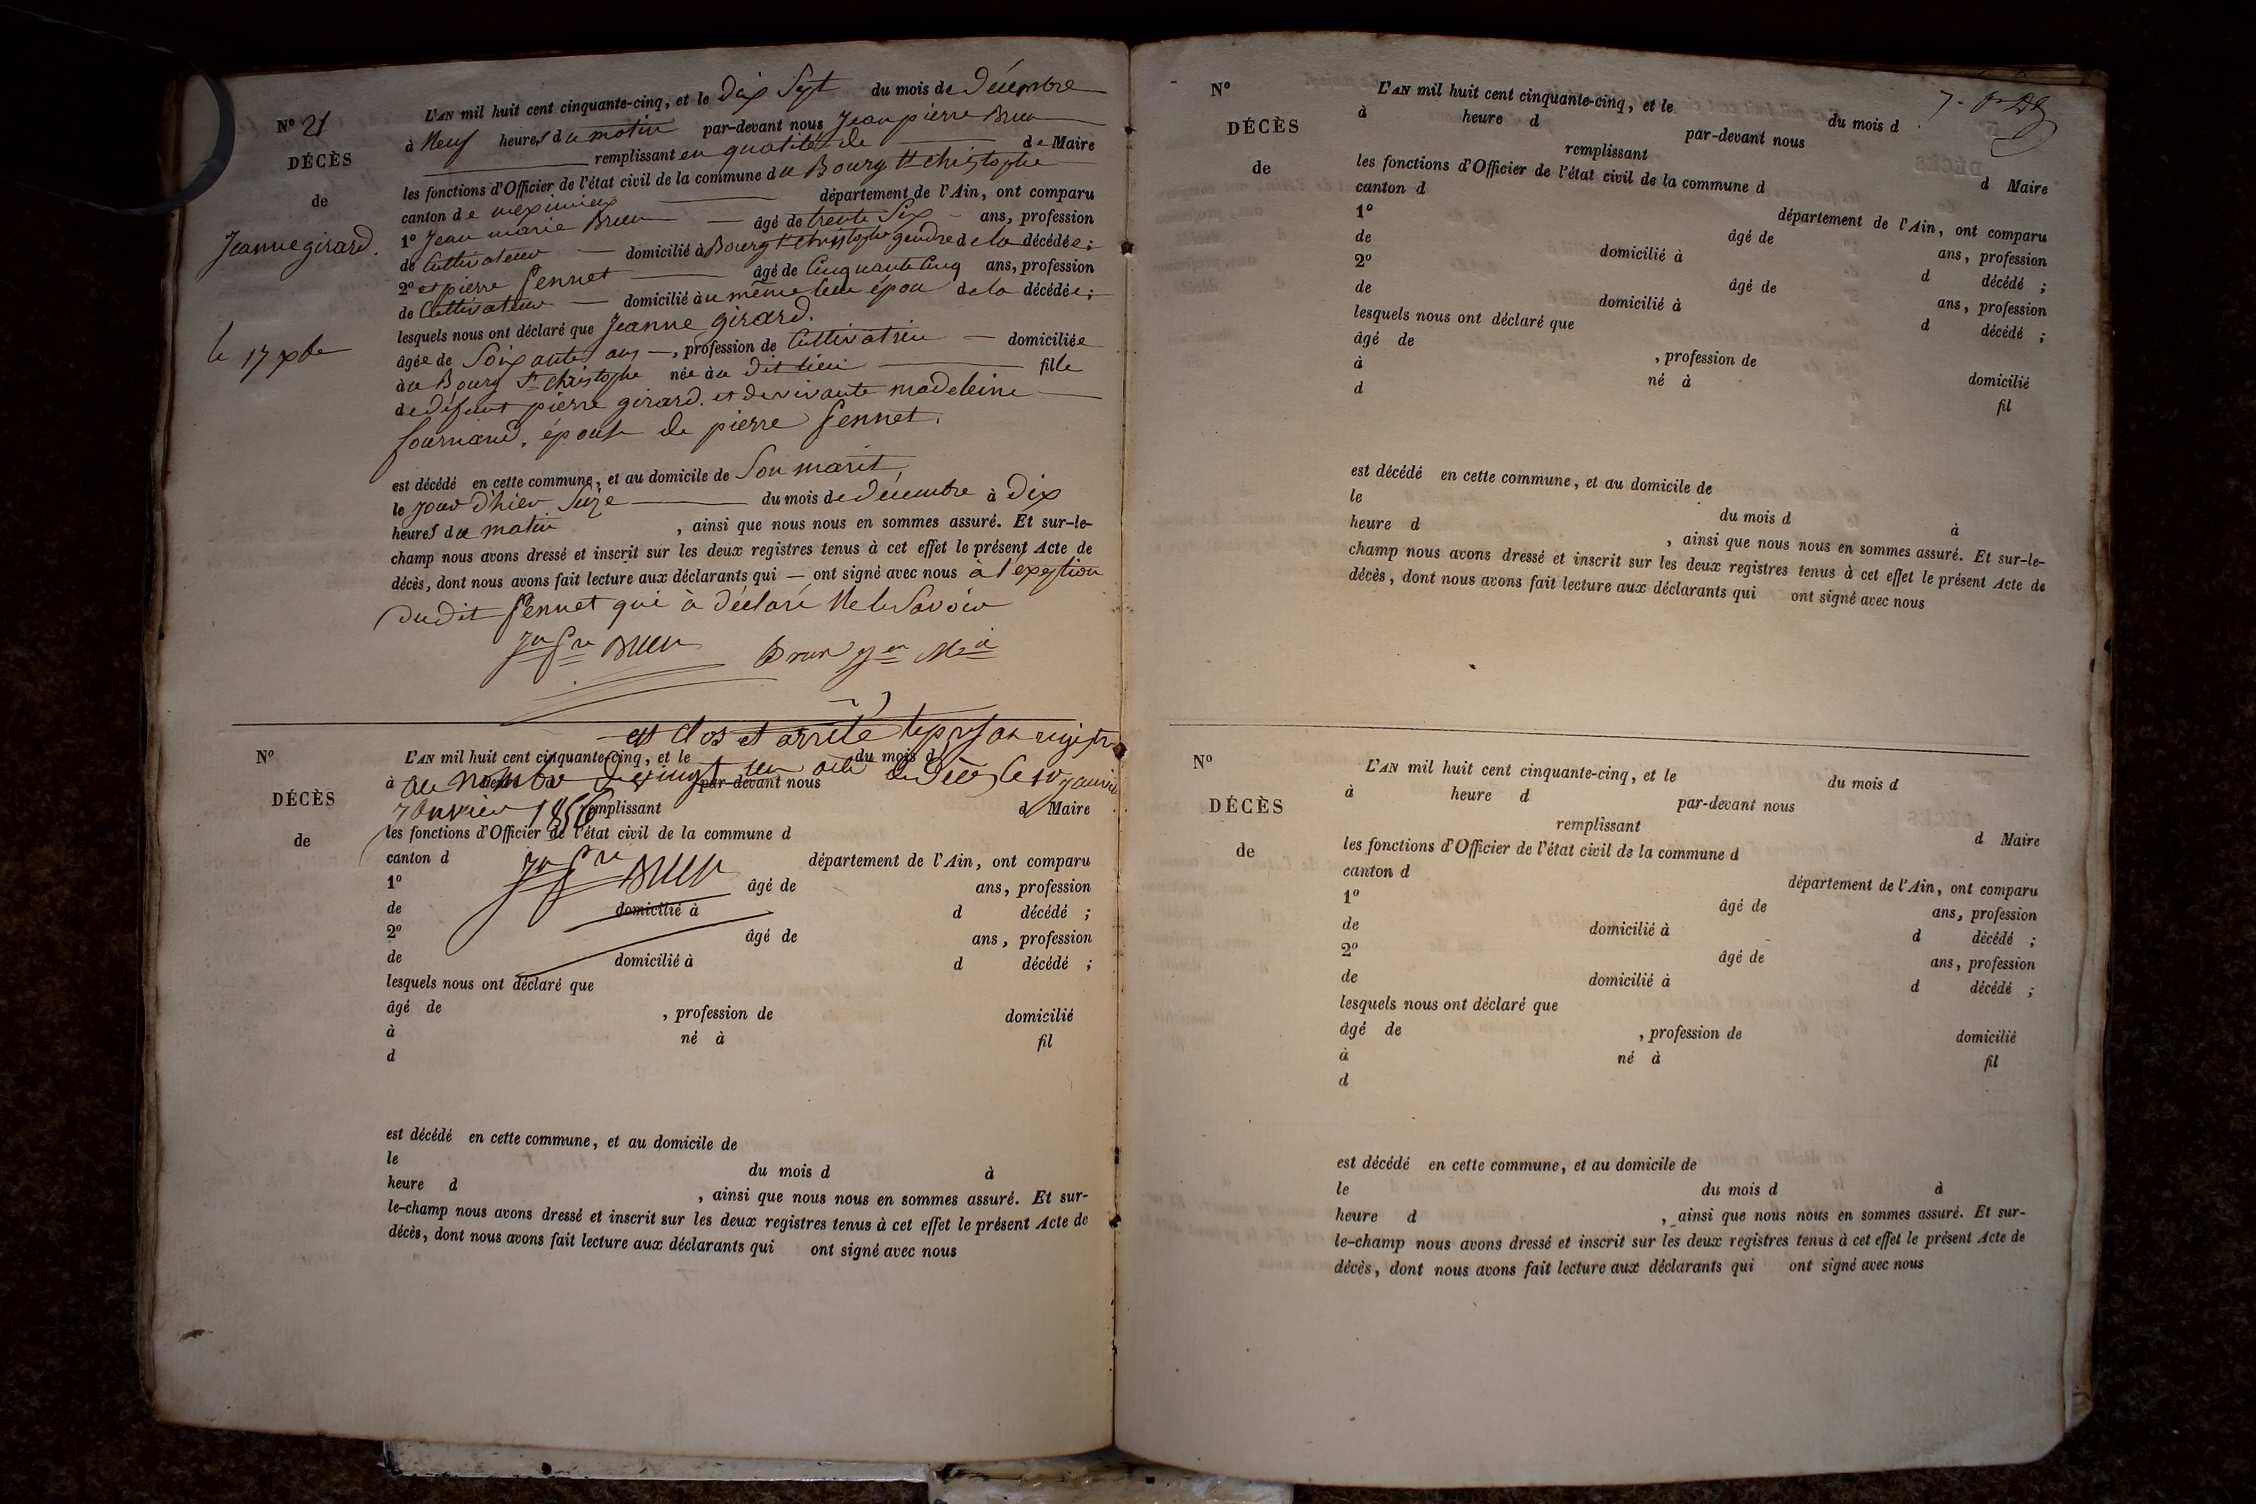 N° 21
DÉCÈS
de
Jeanne girard.
le 17 xbre
L'AN mil huit cent cinquante-cinq, et le Dix Sept du mois de Décembre
à Neuf heures du matin par-devant nous Jean pierre Brun
remplissant en qualité de de Maire
les fonctions d'Officier de l'état civil de la commune du Bourg St christophe
canton de meximieux département de l'Ain, ont comparu
1° Jean marie Brun âgé de trente Six ans, profession
de Cultivateur domicilié à Bourg St christophe gendre de la décédée;
2° et pierre Pennet âgé de Cinquante Cinq ans, profession
de Cultivateur domicilié au même lieu époux de la décédée;
lesquels nous ont déclaré que Jeanne girard.
âgée de Soixante ans, profession de Cultivatrice domiciliée
à u Bourg St christophe née à u dit lieu fille
de défunt pierre girard. et de vivante madeleine
fournand. épouse de pierre Pennet.
est décédé en cette commune, et au domicile de Son marit
le jour d'hier Seize du mois de décembre à Dix
heures du matin, ainsi que nous nous en sommes assuré. Et sur-le-
champ nous avons dressé et inscrit sur les deux registres tenus à cet effet le présent Acte de
décès, dont nous avons fait lecture aux déclarants qui — ont signé avec nous à l'exeption
du dit Pennet qui à déclaré Ne le Savoir
Jn Pre Brun Brun Jean Mie
est clos et arrêté le présent registre
N°
DÉCÈS
de
L'AN mil huit cent cinquante-cinq, et le du mois d
à heure d par-devant nous
au nombre de vingt un acte de Décès le 1er janvier
janvier 1856
remplissant d Maire
les fonctions d'Officier de l'état civil de la commune d
canton d département de l'Ain, ont comparu
Jn Pre Brun
1° âgé de ans, profession
de domicilié à d décédé ;
2° âgé de ans, profession
de domicilié à d décédé ;
lesquels nous ont déclaré que
âgé de , profession de domicilié
à né à fil
d
est décédé en cette commune, et au domicile de
le du mois d à
heure d , ainsi que nous nous en sommes assuré. Et sur-
le-champ nous avons dressé et inscrit sur les deux registres tenus à cet effet le présent Acte de
décès, dont nous avons fait lecture aux déclarants qui ont signé avec nous
N°
DÉCÈS
de
L'AN mil huit cent cinquante-cinq, et le du mois d
à heure d par-devant nous
remplissant d Maire
les fonctions d'Officier de l'état civil de la commune d
canton d département de l'Ain, ont comparu
1° âgé de ans, profession
de domicilié à d décédé ;
2° âgé de ans, profession
de domicilié à d décédé ;
lesquels nous ont déclaré que
âgé de , profession de domicilié
à né à fil
d
est décédé en cette commune, et au domicile de
le du mois d à
heure d , ainsi que nous nous en sommes assuré. Et sur-le-
champ nous avons dressé et inscrit sur les deux registres tenus à cet effet le présent Acte de
décès, dont nous avons fait lecture aux déclarants qui ont signé avec nous
N°
DÉCÈS
de
L'AN mil huit cent cinquante-cinq, et le du mois d
à heure d par-devant nous
remplissant d Maire
les fonctions d'Officier de l'état civil de la commune d
canton d département de l'Ain, ont comparu
1° âgé de ans, profession
de domicilié à d décédé ;
2° âgé de ans, profession
de domicilié à d décédé ;
lesquels nous ont déclaré que
âgé de , profession de domicilié
à né à fil
d
est décédé en cette commune, et au domicile de
le du mois d à
heure d , ainsi que nous nous en sommes assuré. Et sur-
le-champ nous avons dressé et inscrit sur les deux registres tenus à cet effet le présent Acte de
décès, dont nous avons fait lecture aux déclarants qui ont signé avec nous